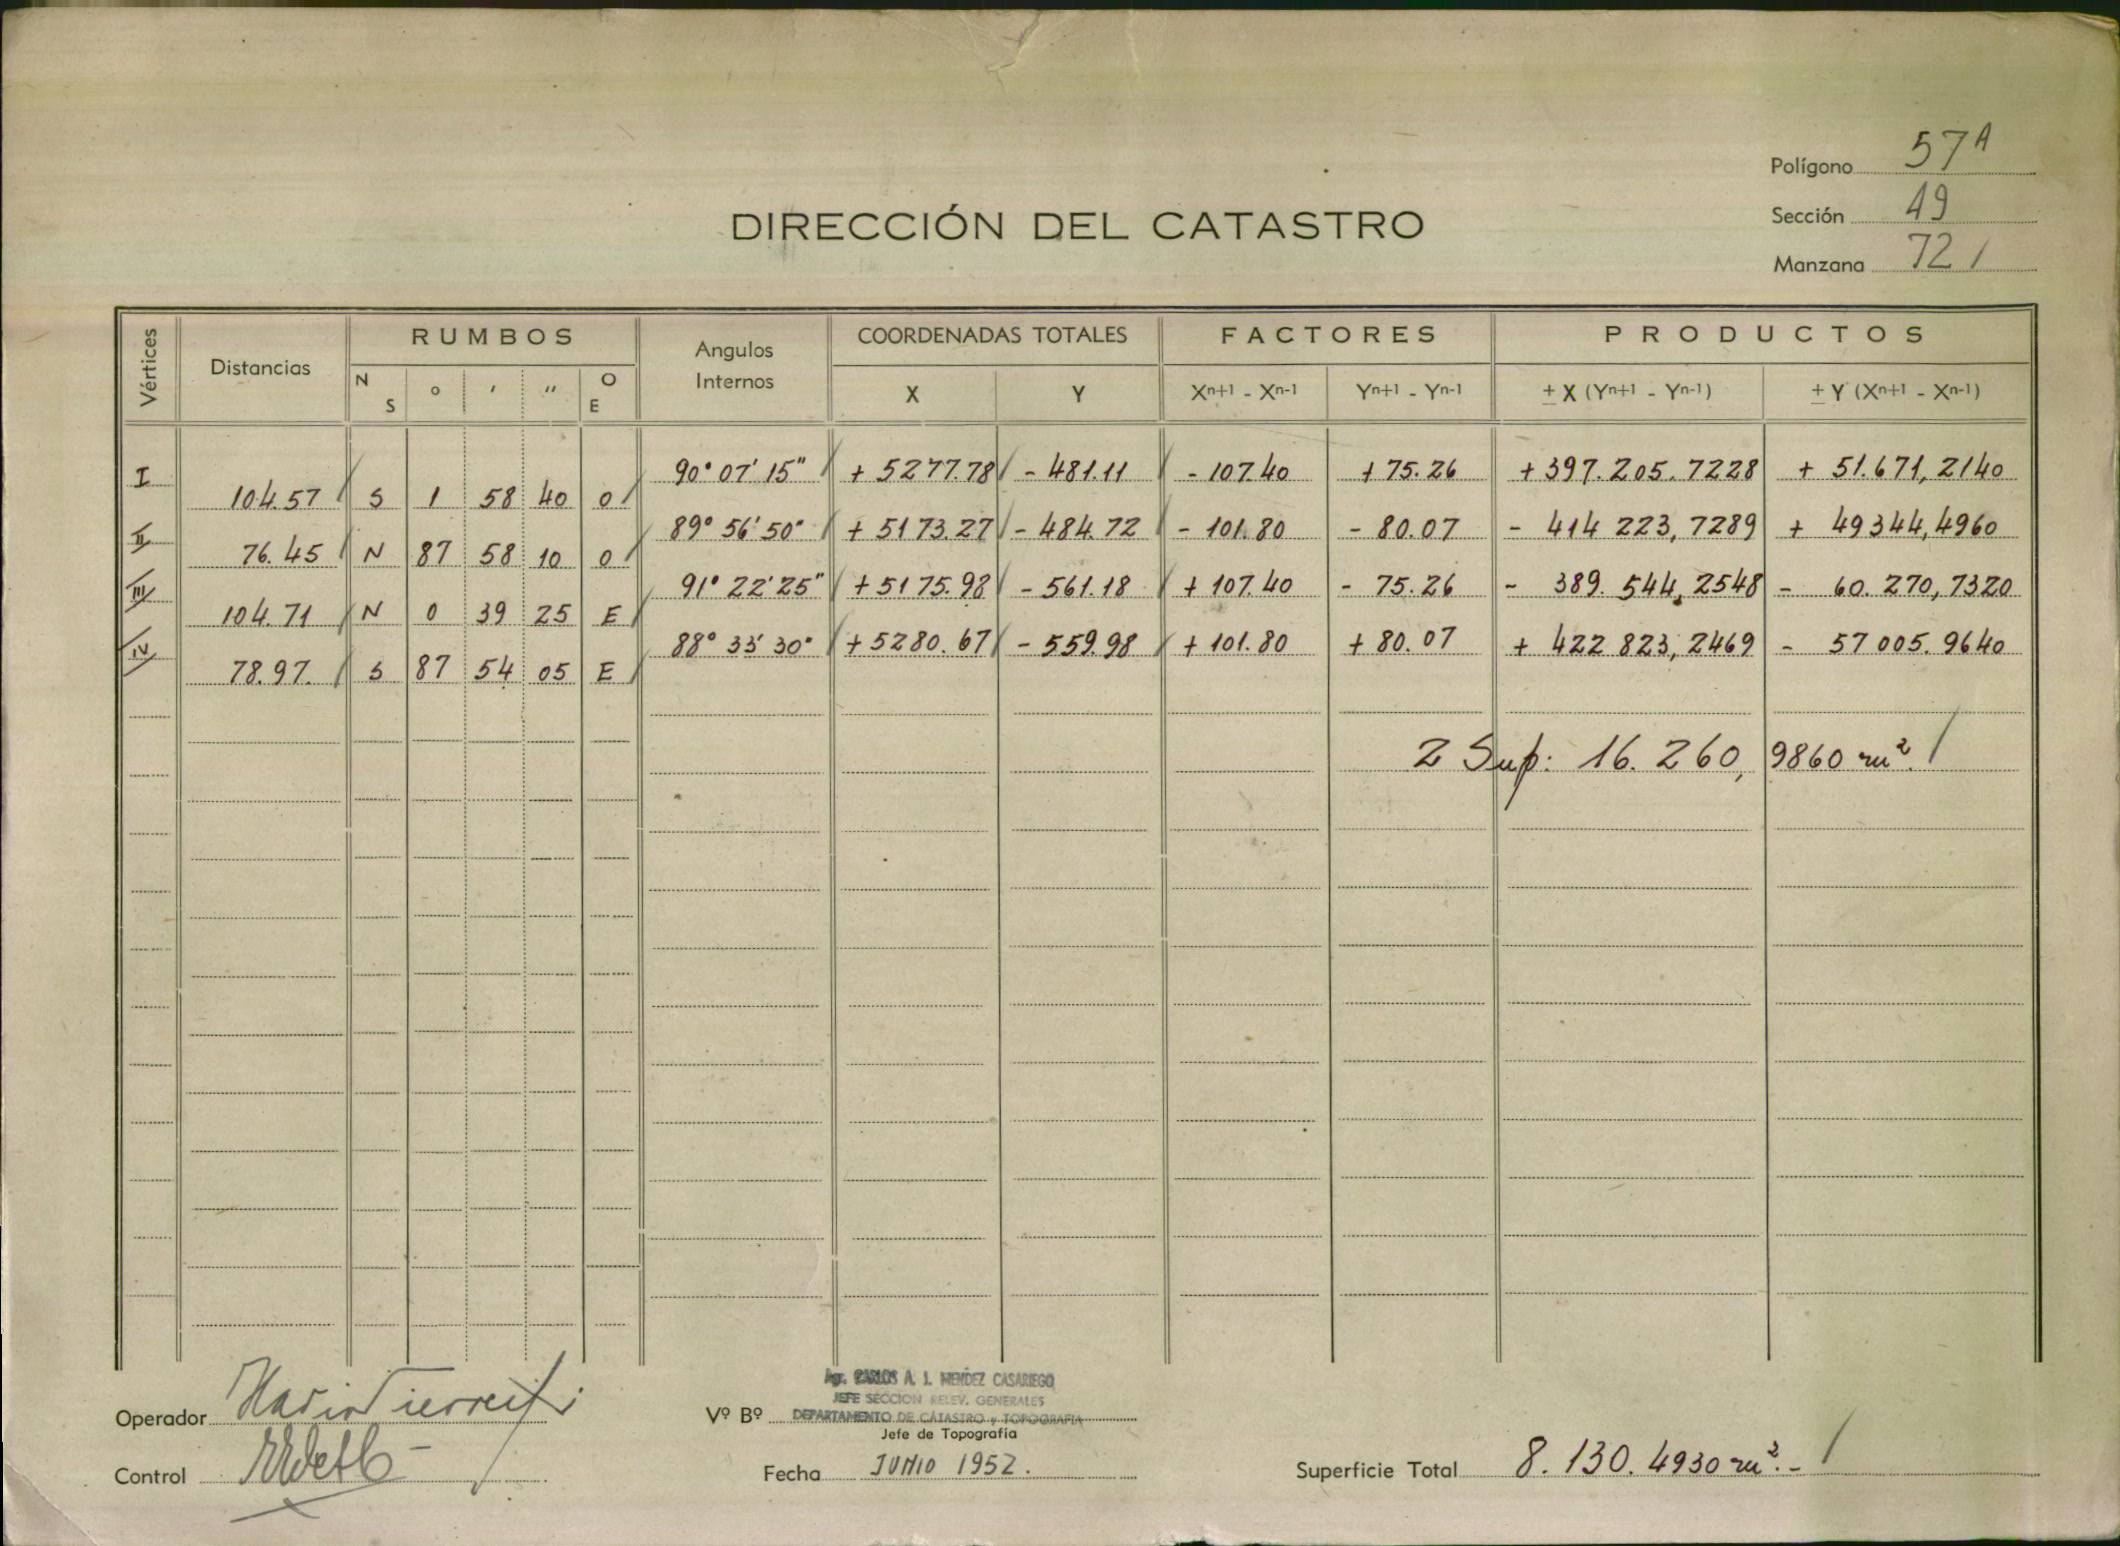 Polígono 57A
Sección 49
Manzana 72
DIRECCIÓN DEL CATASTRO
Vértices Distancias RUMBOS Angulos Internos COORDENADAS TOTALES FACTORES PRODUCTOS
N S o ' '' O E X Y Xn+1 - Xn-1 Yn+1 - Yn-1 ± X (Yn+1 - Yn-1) ± Y (Xn+1 - Xn-1)
I 90° 07' 15" + 5277.78 - 481.11 - 107.40 + 75.26 + 397.205.7228 + 51.671,2140
104.57 S 1 58 40 O
II 89° 56' 50" + 5173.27 - 484.72 - 101.80 - 80.07 - 414 223,7289 + 49344,4960
76.45 N 87 58 10 O
III 91° 22' 25" + 5175.98 - 561.18 + 107.40 - 75.26 - 389.544,2548 - 60.270,7320
104.71 N 0 39 25 E
IV 88° 33' 30" + 5280.67 - 559.98 + 101.80 + 80.07 + 422 823,2469 - 57 005.9640
78.97. S 87 54 05 E
2 Sup: 16.260,9860 m².
Operador
Control
Vº Bº
Agr. CARLOS A. J. MENDEZ CASARIEGO
JEFE SECCION RELEV. GENERALES
DEPARTAMENTO DE CATASTRO y TOPOGRAFIA
Jefe de Topografía
Fecha JUNIO 1952.
Superficie Total 8.130.4930 m².-